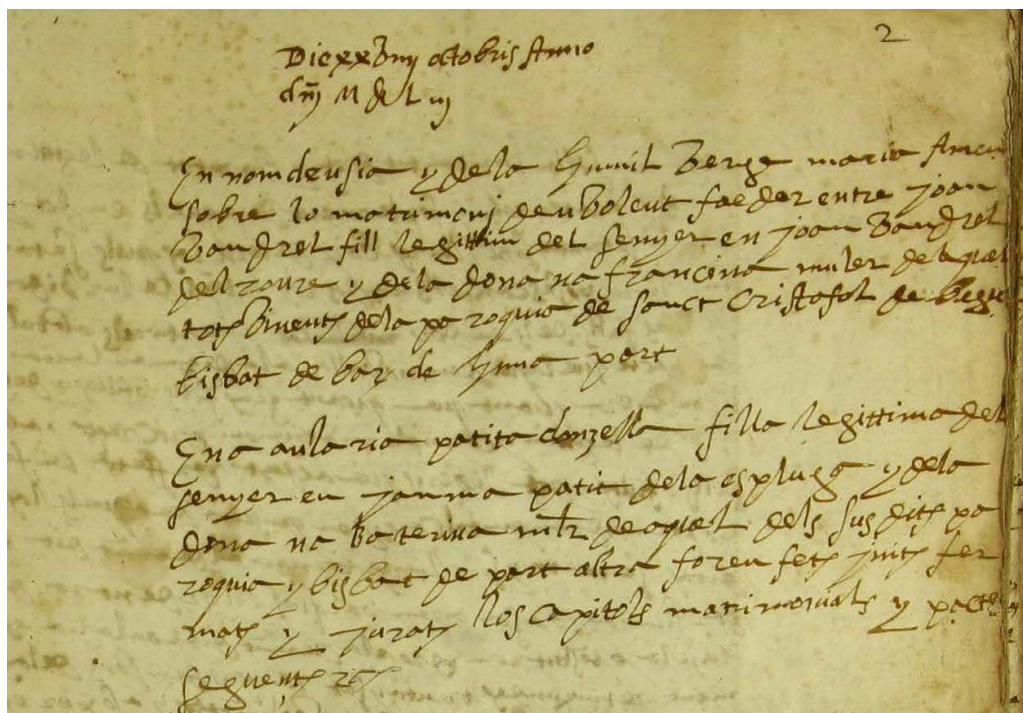 2
Die xxviiij octobris Anno
dnj M d L iij
En nom de usia y de la humil verge maria Amen
sobre lo matrimonj deu volent faedor entre joan
vandrel fill legittim del senyer en joan vandrel
del roure y de la dona na francina muler de aquel
tots vivents de la paroquia de sanct Cristofol de begue
bisbat de bar de huna part
E na aularia patita donzella filla legittima del
senyer en jauma patit de la espluga y de la
dona na katerina mlr de aquel dels susdits pa
roquia y bisbat de part altra foren fets inits fer
mats y jurats los capitols matrimonials y pactes
seguents